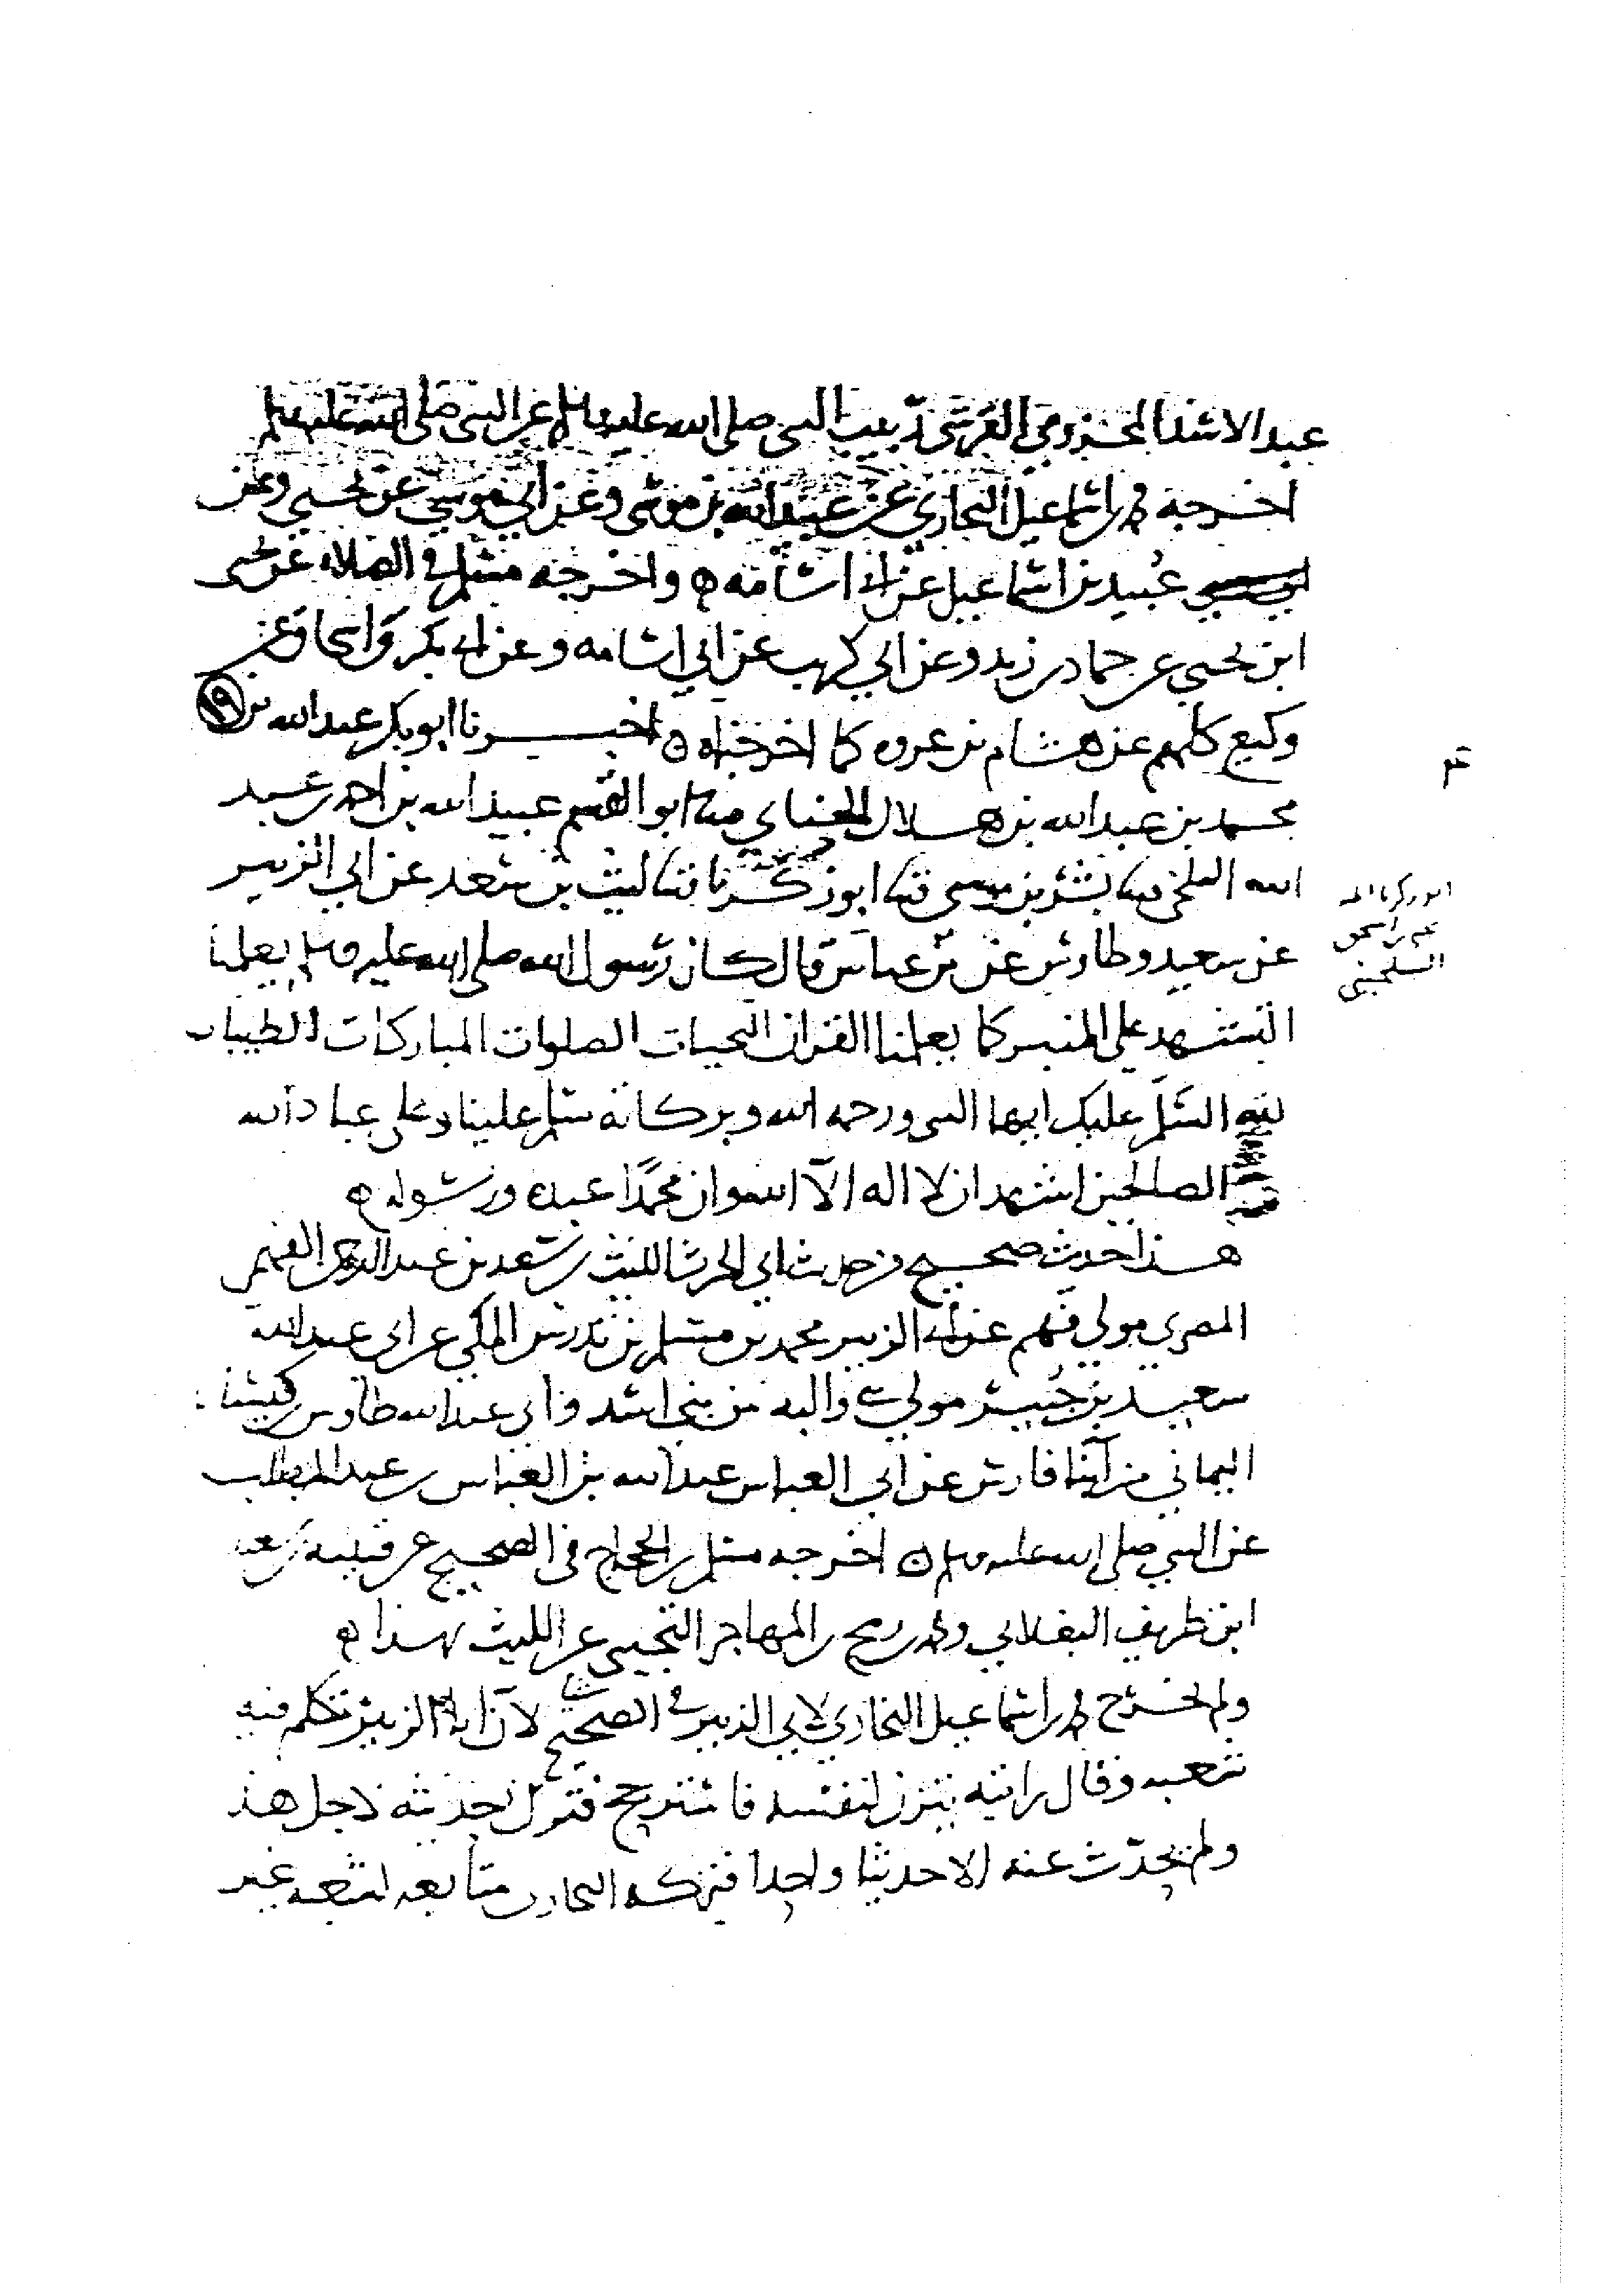 عبد الاسد المخزومي القرشي ربيب النبي صلى الله عليه وسلم عن النبي صلى الله عليه وسلم
اخرجه محمد بن اسماعيل البخاري عن عبيد الله بن موسى وعن ابي موسى عن يحيى وعن
عبيد بن اسماعيل عن ابي اسامه ه واخرجه مسلم في الصلاه عن يحيى
ابن يحيى عن حماد بن زيد وعن ابي كريب عن ابي اسامه وعن ابي بكر واسحاق عن
وكيع كلهم عن هشام بن عروه كما اخرجناه ه اخبرنا ابو بكر عبد الله بن ١٩
محمد بن عبد الله بن هلال الحنائي ثنا ابو القسم عبيد الله بن احمد بن عبيد
الله البلخي ثنا بشر بن موسى ثنا ابو زكريا ثنا ليث بن سعد عن ابي الزبير
عن سعيد وطاوس عن بن عباس قال كان رسول الله صلى الله عليه وسلم يعلمنا
التشهد على المنبر كما يعلمنا القران التحيات الصلوات المباركات الطيبات
لله السلم عليك ايها النبي ورحمه الله وبركاته سلم علينا وعلى عباد الله
الصالحين اشهد ان لا اله الا الله وان محمدا عبده ورسوله ه
هذا حديث صحيح من حديث ابي الحرث الليث بن سعد بن عبد الرحمن الفهمي
المصري مولى فهم عن ابي الزبير محمد بن مسلم بن تدرس المكي عن ابي عبد الله
سعيد بن جبير مولى والبه من بني اسد وابي عبد الله طاوس بن كيسان
اليماني من ابنا فارس عن ابي العباس عبد الله بن العباس بن عبد المطلب
عن النبي صلى الله عليه وسلم ه اخرجه مسلم بن الحجاج في الصحيح عن قتيبه بن سعيد
ابن طريف البغلاني ومحمد بن رمح بن المهاجر التجيبي عن الليث بهذا ه
ولم يخرج محمد بن اسماعيل البخاري لابي الزبير في الصحيح لان ابا الزبير تكلم فيه
شعبه وقال رايته يتزن لنفسه فاسترجح فترك حديثه لاجل هذا
ولم يحدث عنه الا حديثا واحدا فتركه البخاري متابعه لشعبه غير
ابو زكريا
يحيى بن اسحق
السلحيني